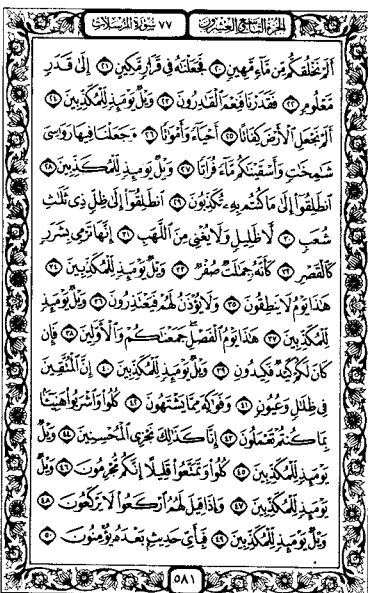 الجزء التاسع والعشرون ٧٧ سورة المرسلات
أَلَمْ نَخْلُقكُّم مِّن مَّآءٍ مَّهِينٍ ٢٠ فَجَعَلْنَٰهُ فِى قَرَارٍ مَّكِينٍ ٢١ إِلَىٰ قَدَرٍ
مَّعْلُومٍ ٢٢ فَقَدَرْنَا فَنِعْمَ ٱلْقَٰدِرُونَ ٢٣ وَيْلٌ يَوْمَئِذٍ لِّلْمُكَذِّبِينَ ٢٤
أَلَمْ نَجْعَلِ ٱلْأَرْضَ كِفَاتًا ٢٥ أَحْيَآءً وَأَمْوَٰتًا ٢٦ وَجَعَلْنَا فِيهَا رَوَٰسِىَ
شَٰمِخَٰتٍ وَأَسْقَيْنَٰكُم مَّآءً فُرَاتًا ٢٧ وَيْلٌ يَوْمَئِذٍ لِّلْمُكَذِّبِينَ ٢٨
ٱنطَلِقُوٓا۟ إِلَىٰ مَا كُنتُم بِهِۦ تُكَذِّبُونَ ٢٩ ٱنطَلِقُوٓا۟ إِلَىٰ ظِلٍّ ذِى ثَلَٰثِ
شُعَبٍ ٣٠ لَّا ظَلِيلٍ وَلَا يُغْنِى مِنَ ٱللَّهَبِ ٣١ إِنَّهَا تَرْمِى بِشَرَرٍ
كَٱلْقَصْرِ ٣٢ كَأَنَّهُۥ جِمَٰلَتٌ صُفْرٌ ٣٣ وَيْلٌ يَوْمَئِذٍ لِّلْمُكَذِّبِينَ ٣٤
هَٰذَا يَوْمُ لَا يَنطِقُونَ ٣٥ وَلَا يُؤْذَنُ لَهُمْ فَيَعْتَذِرُونَ ٣٦ وَيْلٌ يَوْمَئِذٍ
لِّلْمُكَذِّبِينَ ٣٧ هَٰذَا يَوْمُ ٱلْفَصْلِ جَمَعْنَٰكُمْ وَٱلْأَوَّلِينَ ٣٨ فَإِن
كَانَ لَكُمْ كَيْدٌ فَكِيدُونِ ٣٩ وَيْلٌ يَوْمَئِذٍ لِّلْمُكَذِّبِينَ ٤٠ إِنَّ ٱلْمُتَّقِينَ
فِى ظِلَٰلٍ وَعُيُونٍ ٤١ وَفَوَٰكِهَ مِمَّا يَشْتَهُونَ ٤٢ كُلُوا۟ وَٱشْرَبُوا۟ هَنِيٓـًٔۢا
بِمَا كُنتُمْ تَعْمَلُونَ ٤٣ إِنَّا كَذَٰلِكَ نَجْزِى ٱلْمُحْسِنِينَ ٤٤ وَيْلٌ
يَوْمَئِذٍ لِّلْمُكَذِّبِينَ ٤٥ كُلُوا۟ وَتَمَتَّعُوا۟ قَلِيلًا إِنَّكُم مُّجْرِمُونَ ٤٦ وَيْلٌ
يَوْمَئِذٍ لِّلْمُكَذِّبِينَ ٤٧ وَإِذَا قِيلَ لَهُمُ ٱرْكَعُوا۟ لَا يَرْكَعُونَ ٤٨
وَيْلٌ يَوْمَئِذٍ لِّلْمُكَذِّبِينَ ٤٩ فَبِأَىِّ حَدِيثٍۭ بَعْدَهُۥ يُؤْمِنُونَ ٥٠
٥٨١